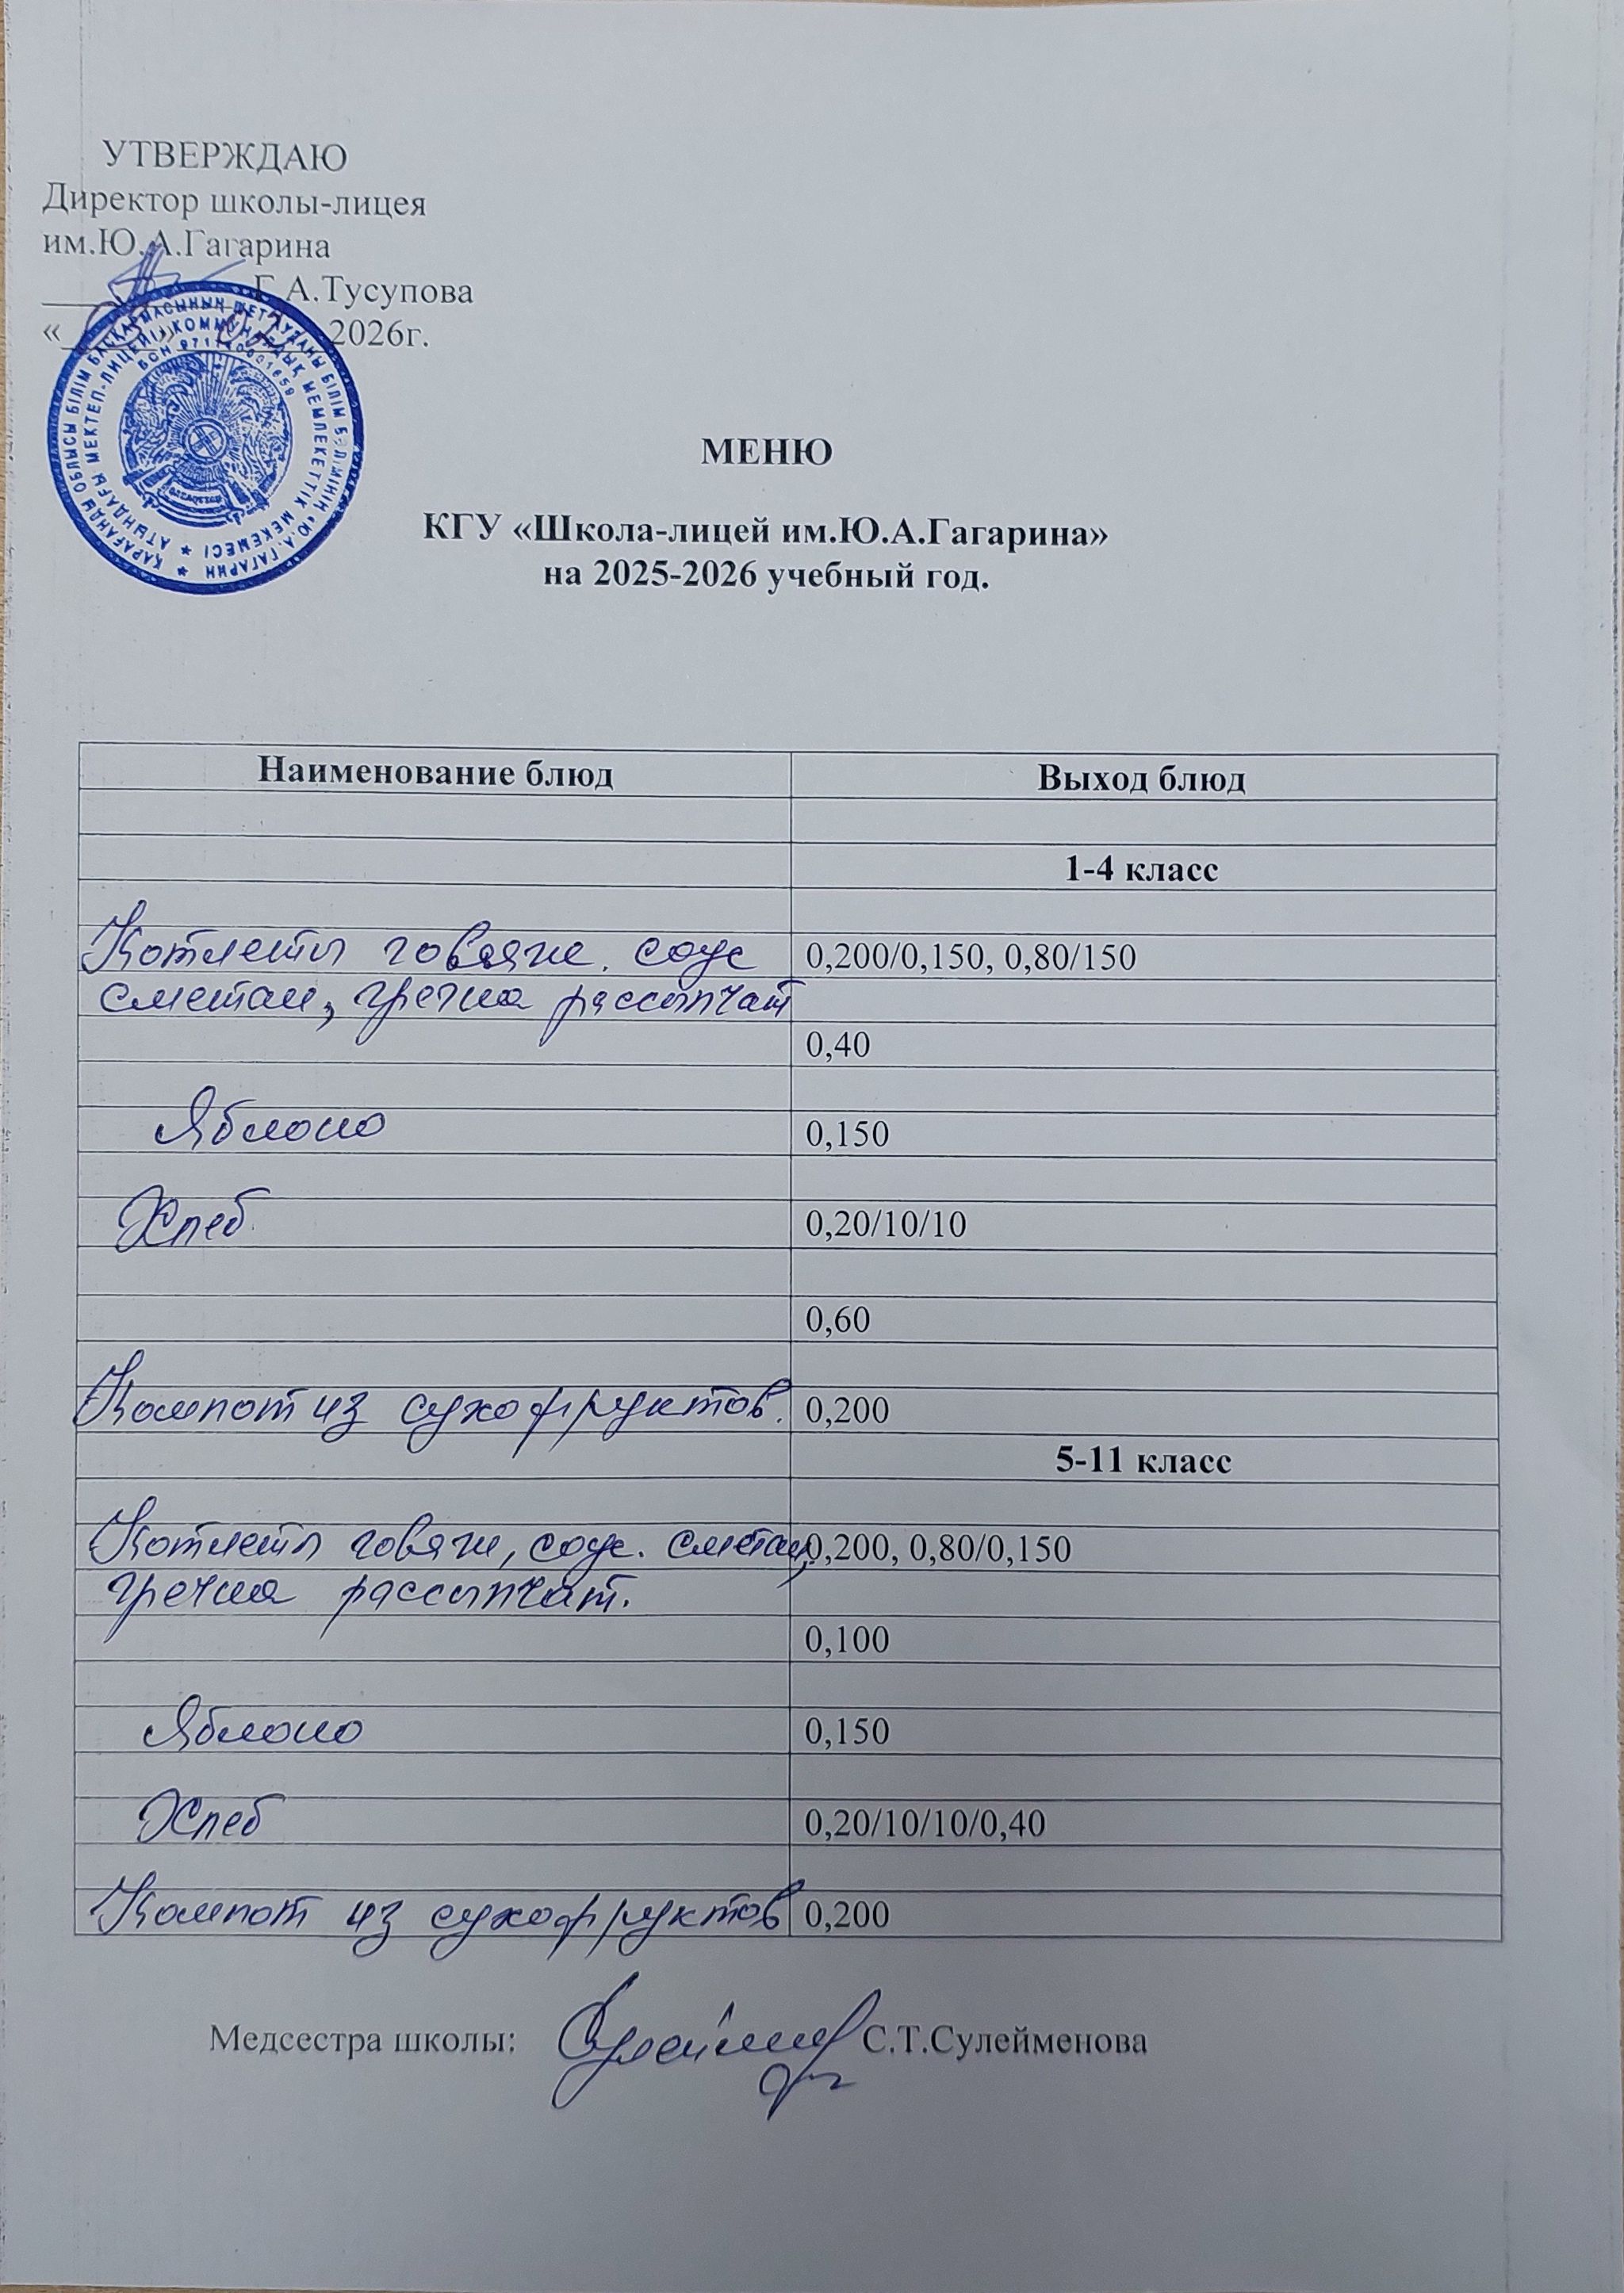 УТВЕРЖДАЮ
Директор школы-лицея
им.Ю.А.Гагарина
Г.А.Тусупова
« » 02 2026г.
ҚАРАҒАНДЫ ОБЛЫСЫ БІЛІМ БАСҚАРМАСЫНЫҢ ШЕТ АУДАНЫ БІЛІМ БӨЛІМІНІҢ «Ю.А. ГАГАРИН
АТЫНДАҒЫ МЕКТЕП-ЛИЦЕЙІ» КОММУНАЛДЫҚ МЕМЛЕКЕТТІК МЕКЕМЕСІ
БСН
МЕНЮ
КГУ «Школа-лицей им.Ю.А.Гагарина»
на 2025-2026 учебный год.
Наименование блюд Выход блюд
1-4 класс
Котлеты говяжи. соус 0,200/0,150, 0,80/150
сметан, гречка рассыпчат
0,40
Яблоко 0,150
Хлеб 0,20/10/10
0,60
Компот из сухофруктов. 0,200
5-11 класс
Котлеты говяжи, соус. сметан, 0,200, 0,80/0,150
гречка рассыпчат.
0,100
Яблоко 0,150
Хлеб 0,20/10/10/0,40
Компот из сухофруктов 0,200
Медсестра школы: С.Т.Сулейменова